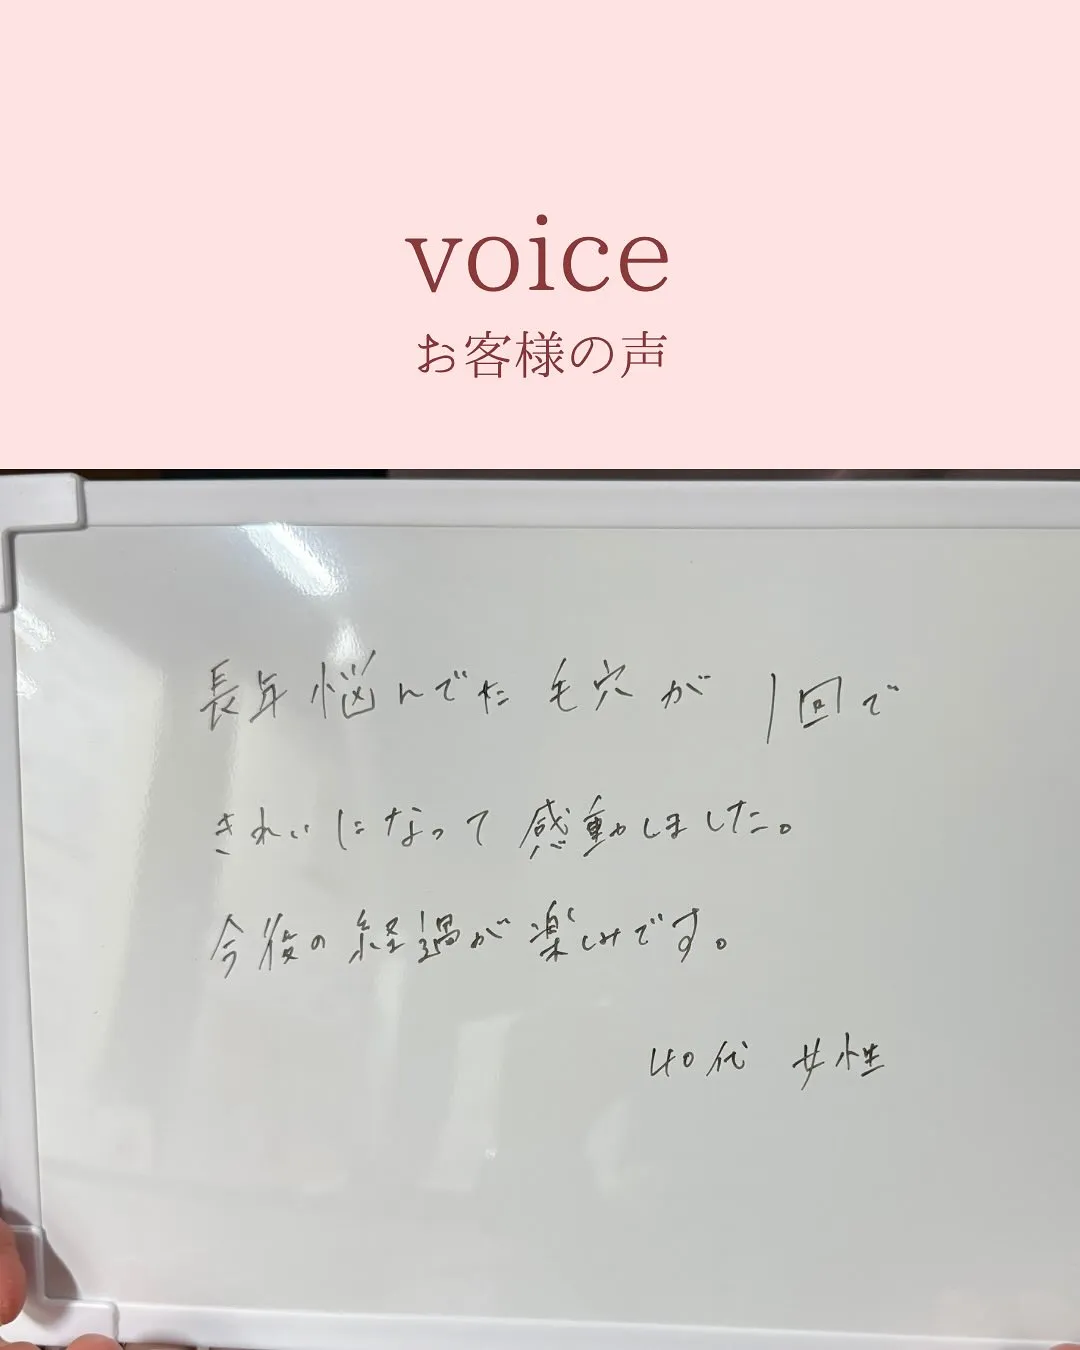 voice
お客様の声
長年悩んでた毛穴が 1回で
きれいになって感動しました。
今後の経過が楽しみです。
40代 女性